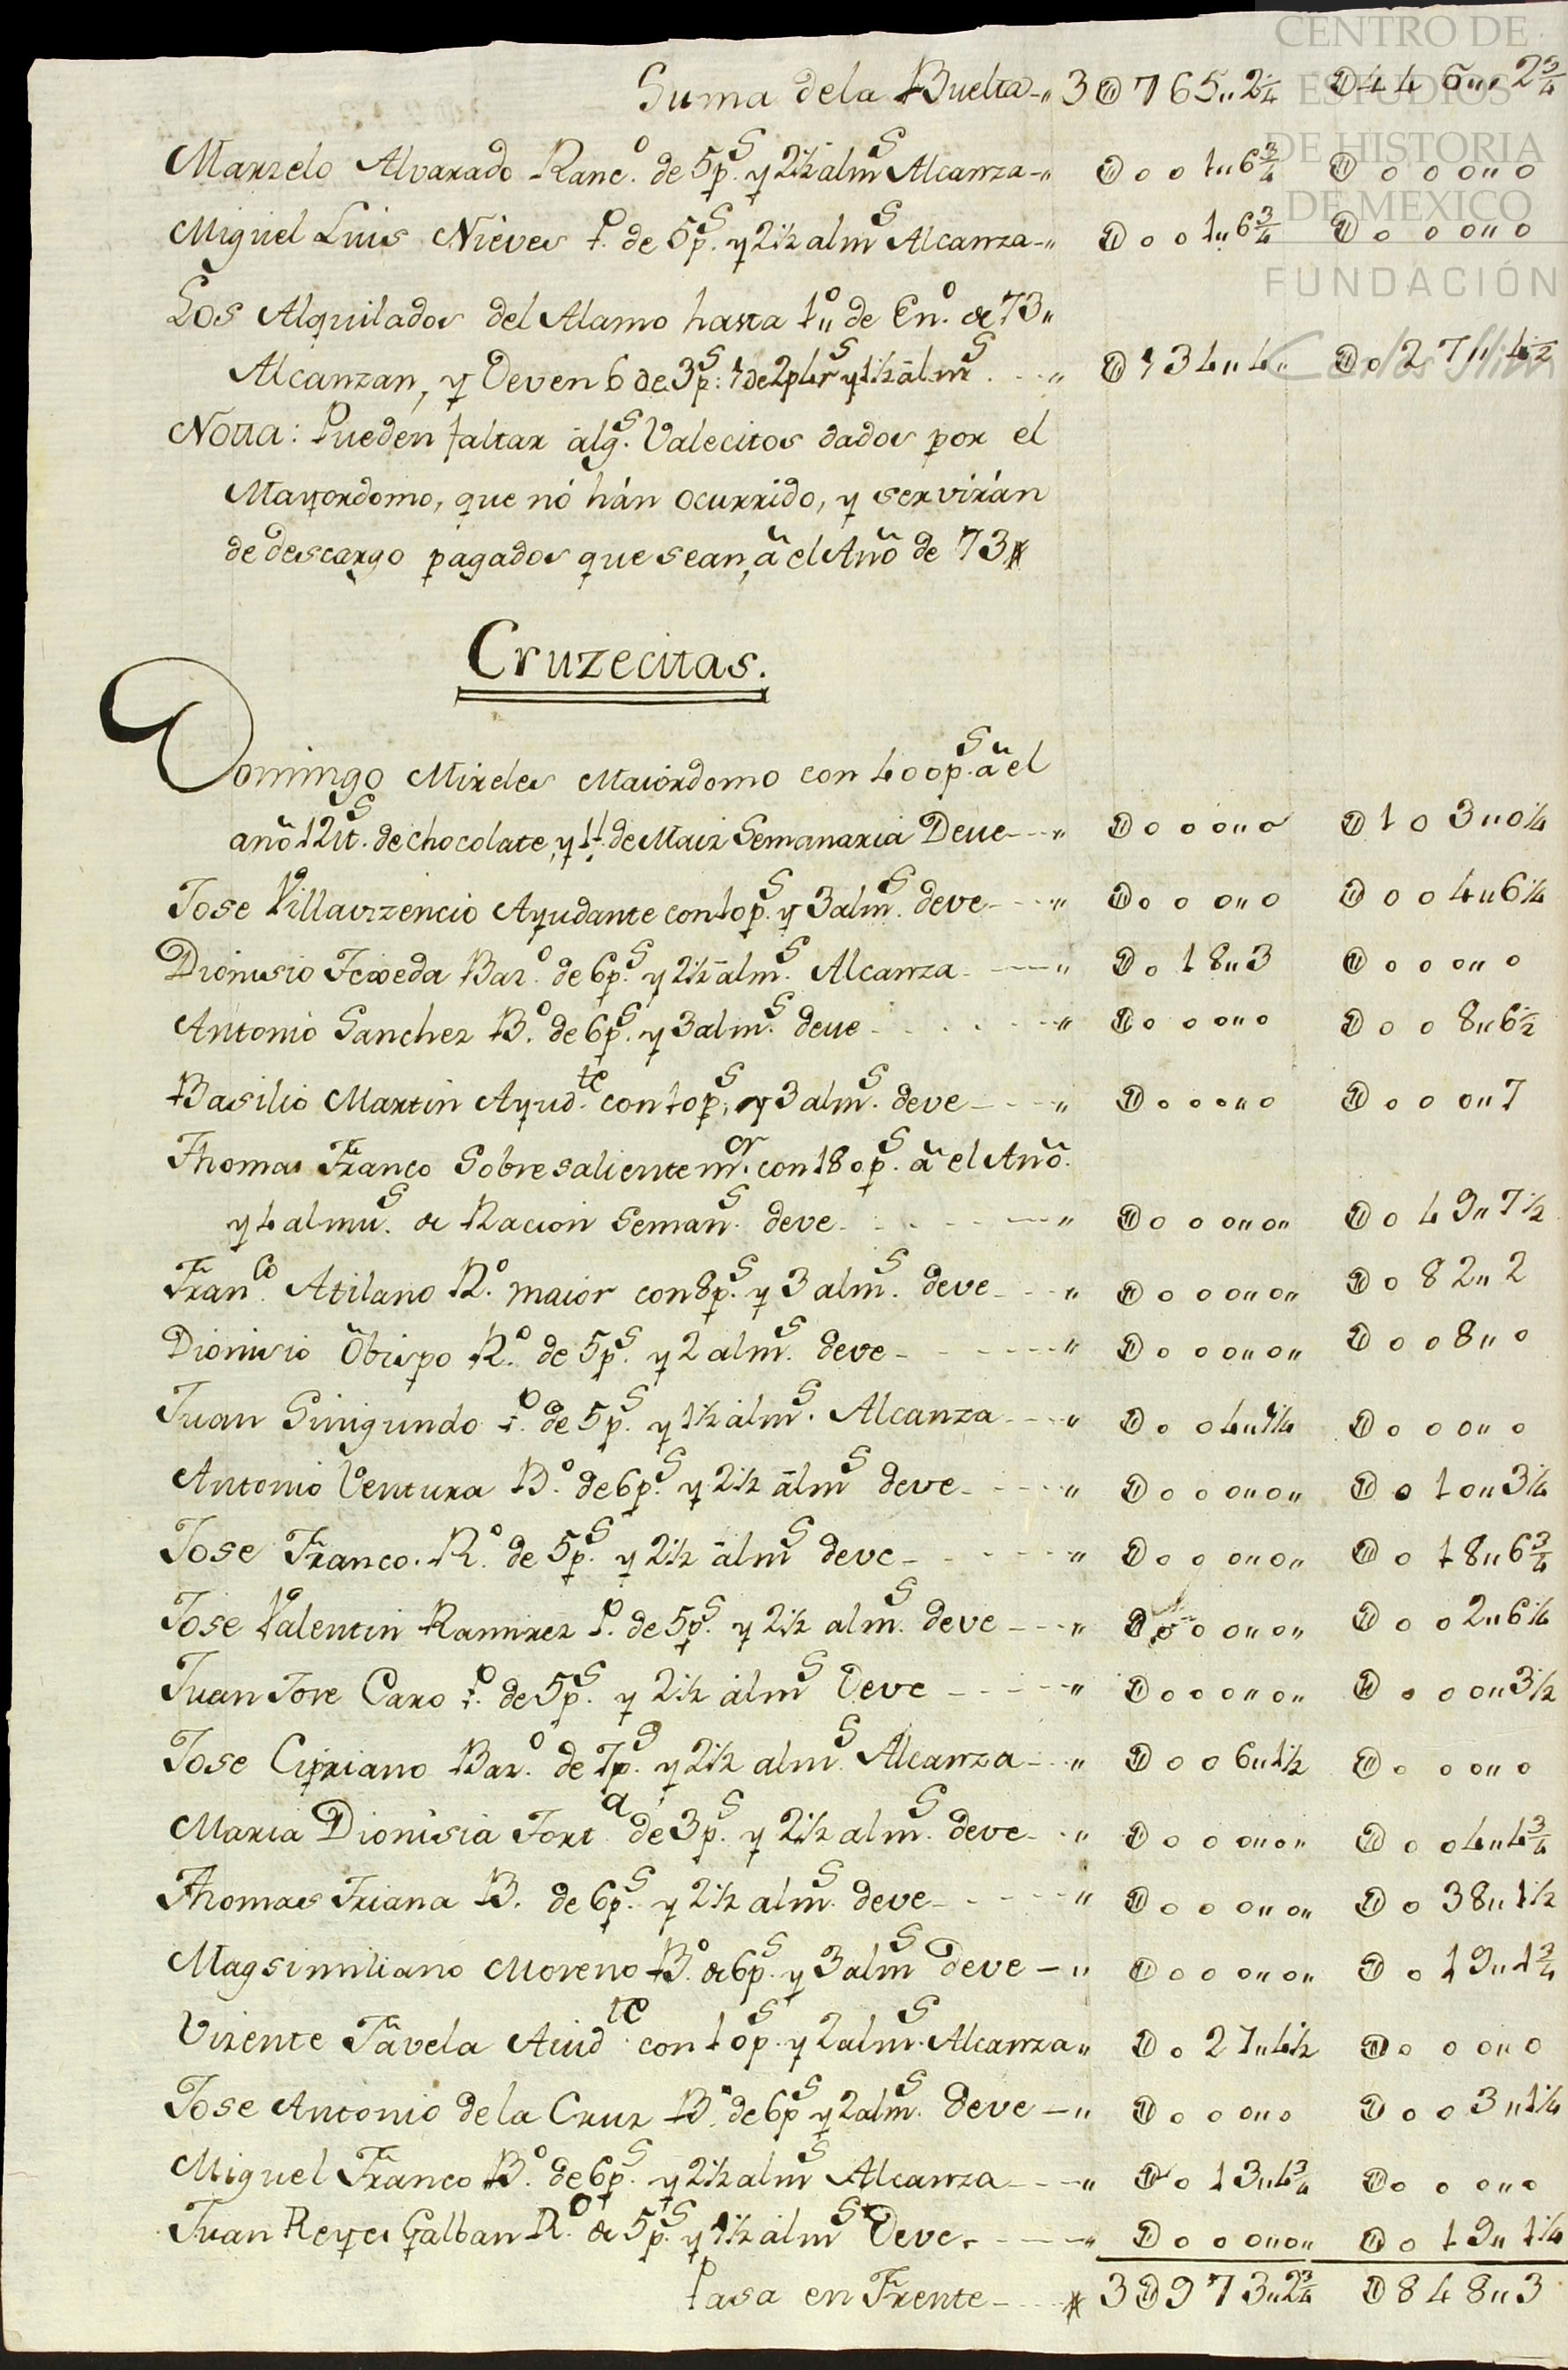 CENTRO DE
ESTUDIOS
DE HISTORIA
DE MEXICO
FUNDACIÓN
Carlos Slim
Suma dela Buelta-" 3U765,,2¼ U445,,2¾
Marzelo Alvarado Ranc.º de 5p.s y 2½ alms Alcanza-" U001,,6¾ U000,,0
Miguel Luis Nieves P.º de 5p.s y 2½ alms Alcanza-" U001,,6¾ U000,,0
Los Alquilados del Alamo hasta 1º,, de En.º de 73,,
Alcanzan, y Deven 6 de 3p.s: 1 de 2p 4rs y 1½ alms. - - " U134,,4,, U027,,4½
Notta: Pueden faltar alg.s Valecitos dados por el
Mayordomo, que nó hán ocurrido, y servirán
de descargo pagados que sean, â el Año de 73
Cruzecitas.
Domingo Mireles Maiordomo con 400p.s â el
año 12 lt.s de chocolate, y 1f. de Maiz Semanaria Deue---" U000,,0 U103,,0¼
Jose Villavizencio Ayudante con 10p.s y 3 alm.s deve---" U000,,0 U004,,6¼
Dionisio Texeda Baz.º de 6p.s y 2½ alm.s Alcanza.---" U018,,3 U000,,0
Antonio Sanchez B.º de 6p.s y 3 alm.s deue - - - - " U000,,0 U008,,6½
Basilio Martin Ayud.te con 10p.s, y 3 alm.s deve---" U000,,0 U000,,7
Thomas Franco Sobresaliente m.or con 180p.s â el Año.
y 4 almu.s de Racion Seman.s deve - - - - " U000,,0,, U049,,7½
Fran.co Atilano R.º maior con 8p.s y 3 alm.s deve---" U000,,0,, U082,,2
Dionisio Obispo R.º de 5p.s y 2 alm.s deve - - - - " U000,,0,, U008,,0
Juan Sinigundo P.º de 5p.s y 1½ alm.s. Alcanza---" U004,,1¼ U000,,0
Antonio Ventura B.º de 6p.s y 2½ alms deve- - - -" U000,,0,, U010,,3¼
Jose Franco. R.º de 5p.s y 2½ alms deve - - - - " U000,,0,, U018,,6¾
Jose Valentin Ramirez P.º de 5p.s y 2½ alm.s deve---" U000,,0,, U002,,6¼
Juan Jose Caro P.º de 5p.s y 2½ alms Deve - - - - " U000,,0,, U000,,3½
Jose Cipriano Baz.º de 7p.s y 2½ alm.s Alcanza---" U006,,1½ U000,,0
Maria Dionisia Tort.a de 3p.s y 2½ alm.s deve- -" U000,,0,, U004,,4¾
Thomas Triana B. de 6p.s y 2½ alm.s deve- - - -" U000,,0,, U038,,1½
Magsimiliano Moreno B.º de 6p.s y 3 alms Deve - " U000,,0,, U019,,1¾
Vizente Tavela Aiud.te con 10p.s y 2 alm.s Alcanza" U027,,4½ U000,,0
Jose Antonio dela Cruz B.º de 6ps y 2 alm.s Deve-" U000,,0 U003,,1¼
Miguel Franco B.º de 6p.s y 2½ alms Alcanza---" U013,,4¾ U000,,0
Juan Reyes Galban R.º de 5p.s y 1½ alms Deve.---" U000,,0,, U019,,1¼
Pasa en Frente---- 3U973,,2¾ U848,,3